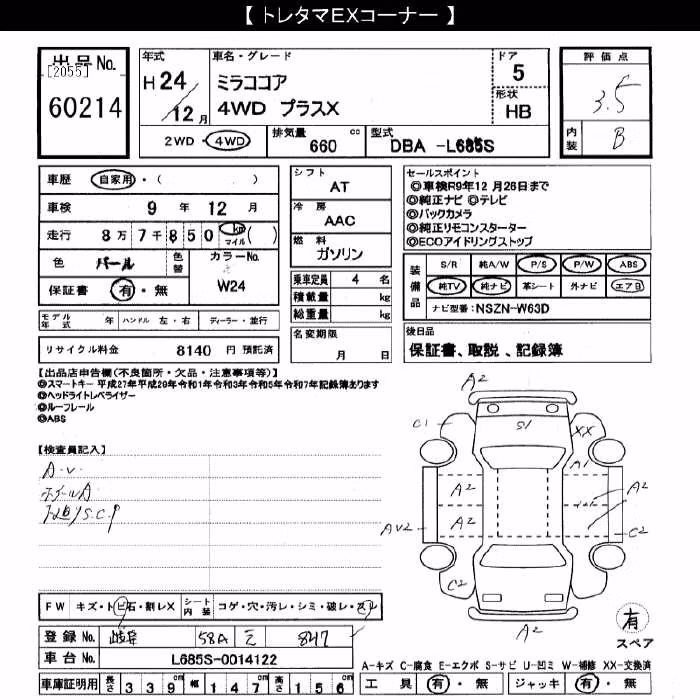 【 トレタマEXコーナー 】
出品No.
[2055]
60214
年式
H24
12月
車名・グレード
ミラココア
4WD プラスX
ドア
5
形状
HB
評価点
3.5
内装
B
2WD・4WD
排気量
660 cc
型式
DBA -L685S
車歴 自家用・( )
車検 9 年 12 月
走行 8万7千850 km マイル ( )
色 パール
色替
カラーNo.
W24
保証書 有・無
シフト
AT
冷房
AAC
燃料
ガソリン
乗車定員 4 名
積載量 kg
総重量 kg
セールスポイント
◎車検R9年12月26日まで
◎純正ナビ◎テレビ
◎バックカメラ
◎純正リモコンスターター
◎ECOアイドリングストップ
装備品
S/R 純A/W P/S P/W ABS
純TV 純ナビ 革シート 外ナビ エアB
ナビ型番:NSZN-W63D
モデル年式 年 ハンドル 左・右 ディーラー・並行
リサイクル料金 8140 円 預託済
名変期限
月 日
後日品
保証書、取説、記録簿
【出品店申告欄(不良箇所・欠品・注意事項等)】
◎スマートキー 平成27年平成29年令和1年令和3年令和5年令和7年記録簿あります
◎ヘッドライトレベライザー
◎ルーフレール
◎ABS
【検査員記入】
A・V・
ホイールA
下廻りS.C.P
A2
C1
S1
XX
A1
A2
A2
A2
AV2
C2
C2
A2
有
スペア
FW キズ・トビ石・割レX
シート内装
コゲ・穴・汚レ・シミ・破レ・スレ
登録No. 岐阜 58A え 847
車台No. L685S-0014122
車庫証明用 長さ 339 cm 幅 147 cm 高さ 156 cm
A-キズ C-腐食 E-エクボ S-サビ U-凹ミ W-補修 XX-交換済
工具 有・無 ジャッキ 有・無